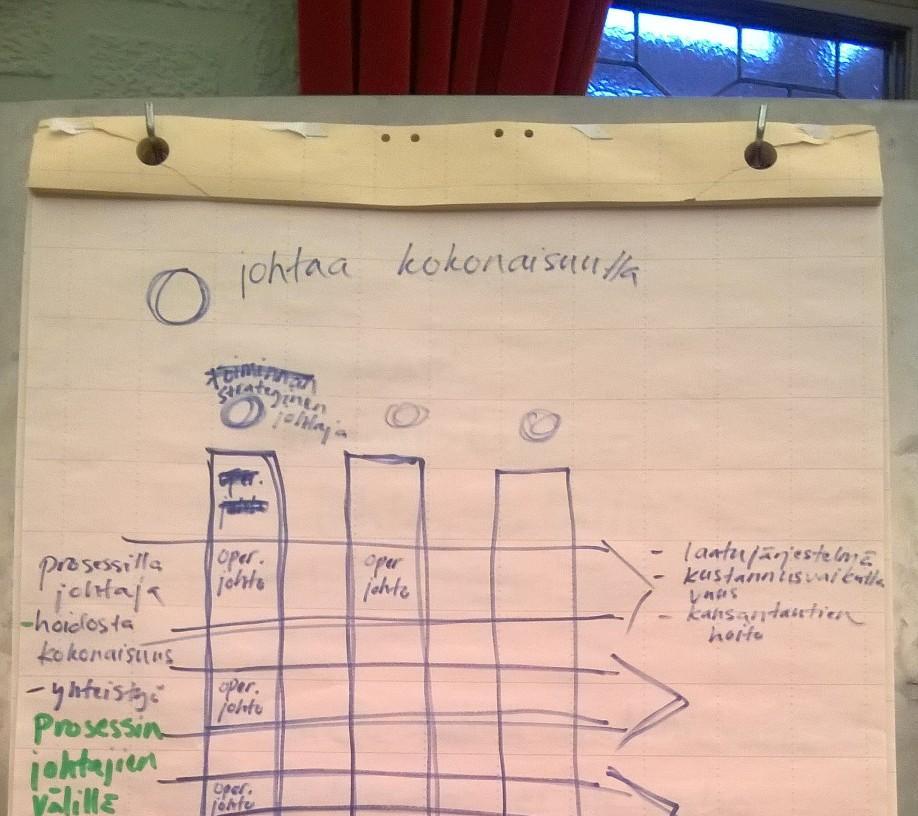 johtaa kokonaisuutta
toiminnan
strateginen
johtaja
oper.
johto
prosessilla
johtaja
-hoidosta
kokonaisuus
- yhteistyö
prosessin
johtajien
välillä
oper.
johto
oper
johto
oper.
johto
oper.
johto
- laatujärjestelmä
- kustannusvaikutta
vuus
- kansantautien
hoito